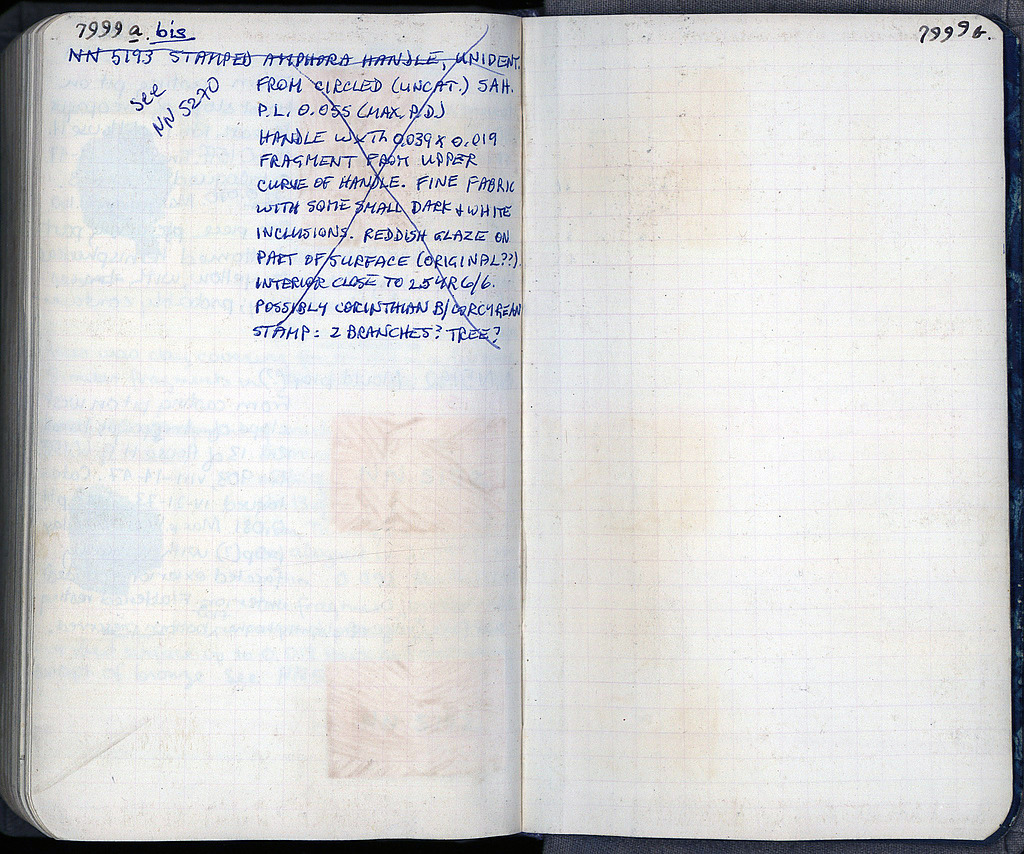 7999 a bis
NN 5193 STAMPED AMPHORA HANDLE, UNIDENT.
see
NN 5270
FROM CIRCLED (UNCAT.) SAH.
P.L. 0.055 (MAX. P.D.)
HANDLE WXTH 0.039 X 0.019
FRAGMENT FROM UPPER
CURVE OF HANDLE. FINE FABRIC
WITH SOME SMALL DARK & WHITE
INCLUSIONS. REDDISH GLAZE ON
PART OF SURFACE (ORIGINAL??).
INTERIOR CLOSE TO 2.5YR 6/6.
POSSIBLY CORINTHIAN B/CORCYREAN
STAMP: 2 BRANCHES? TREE?
7999 b.